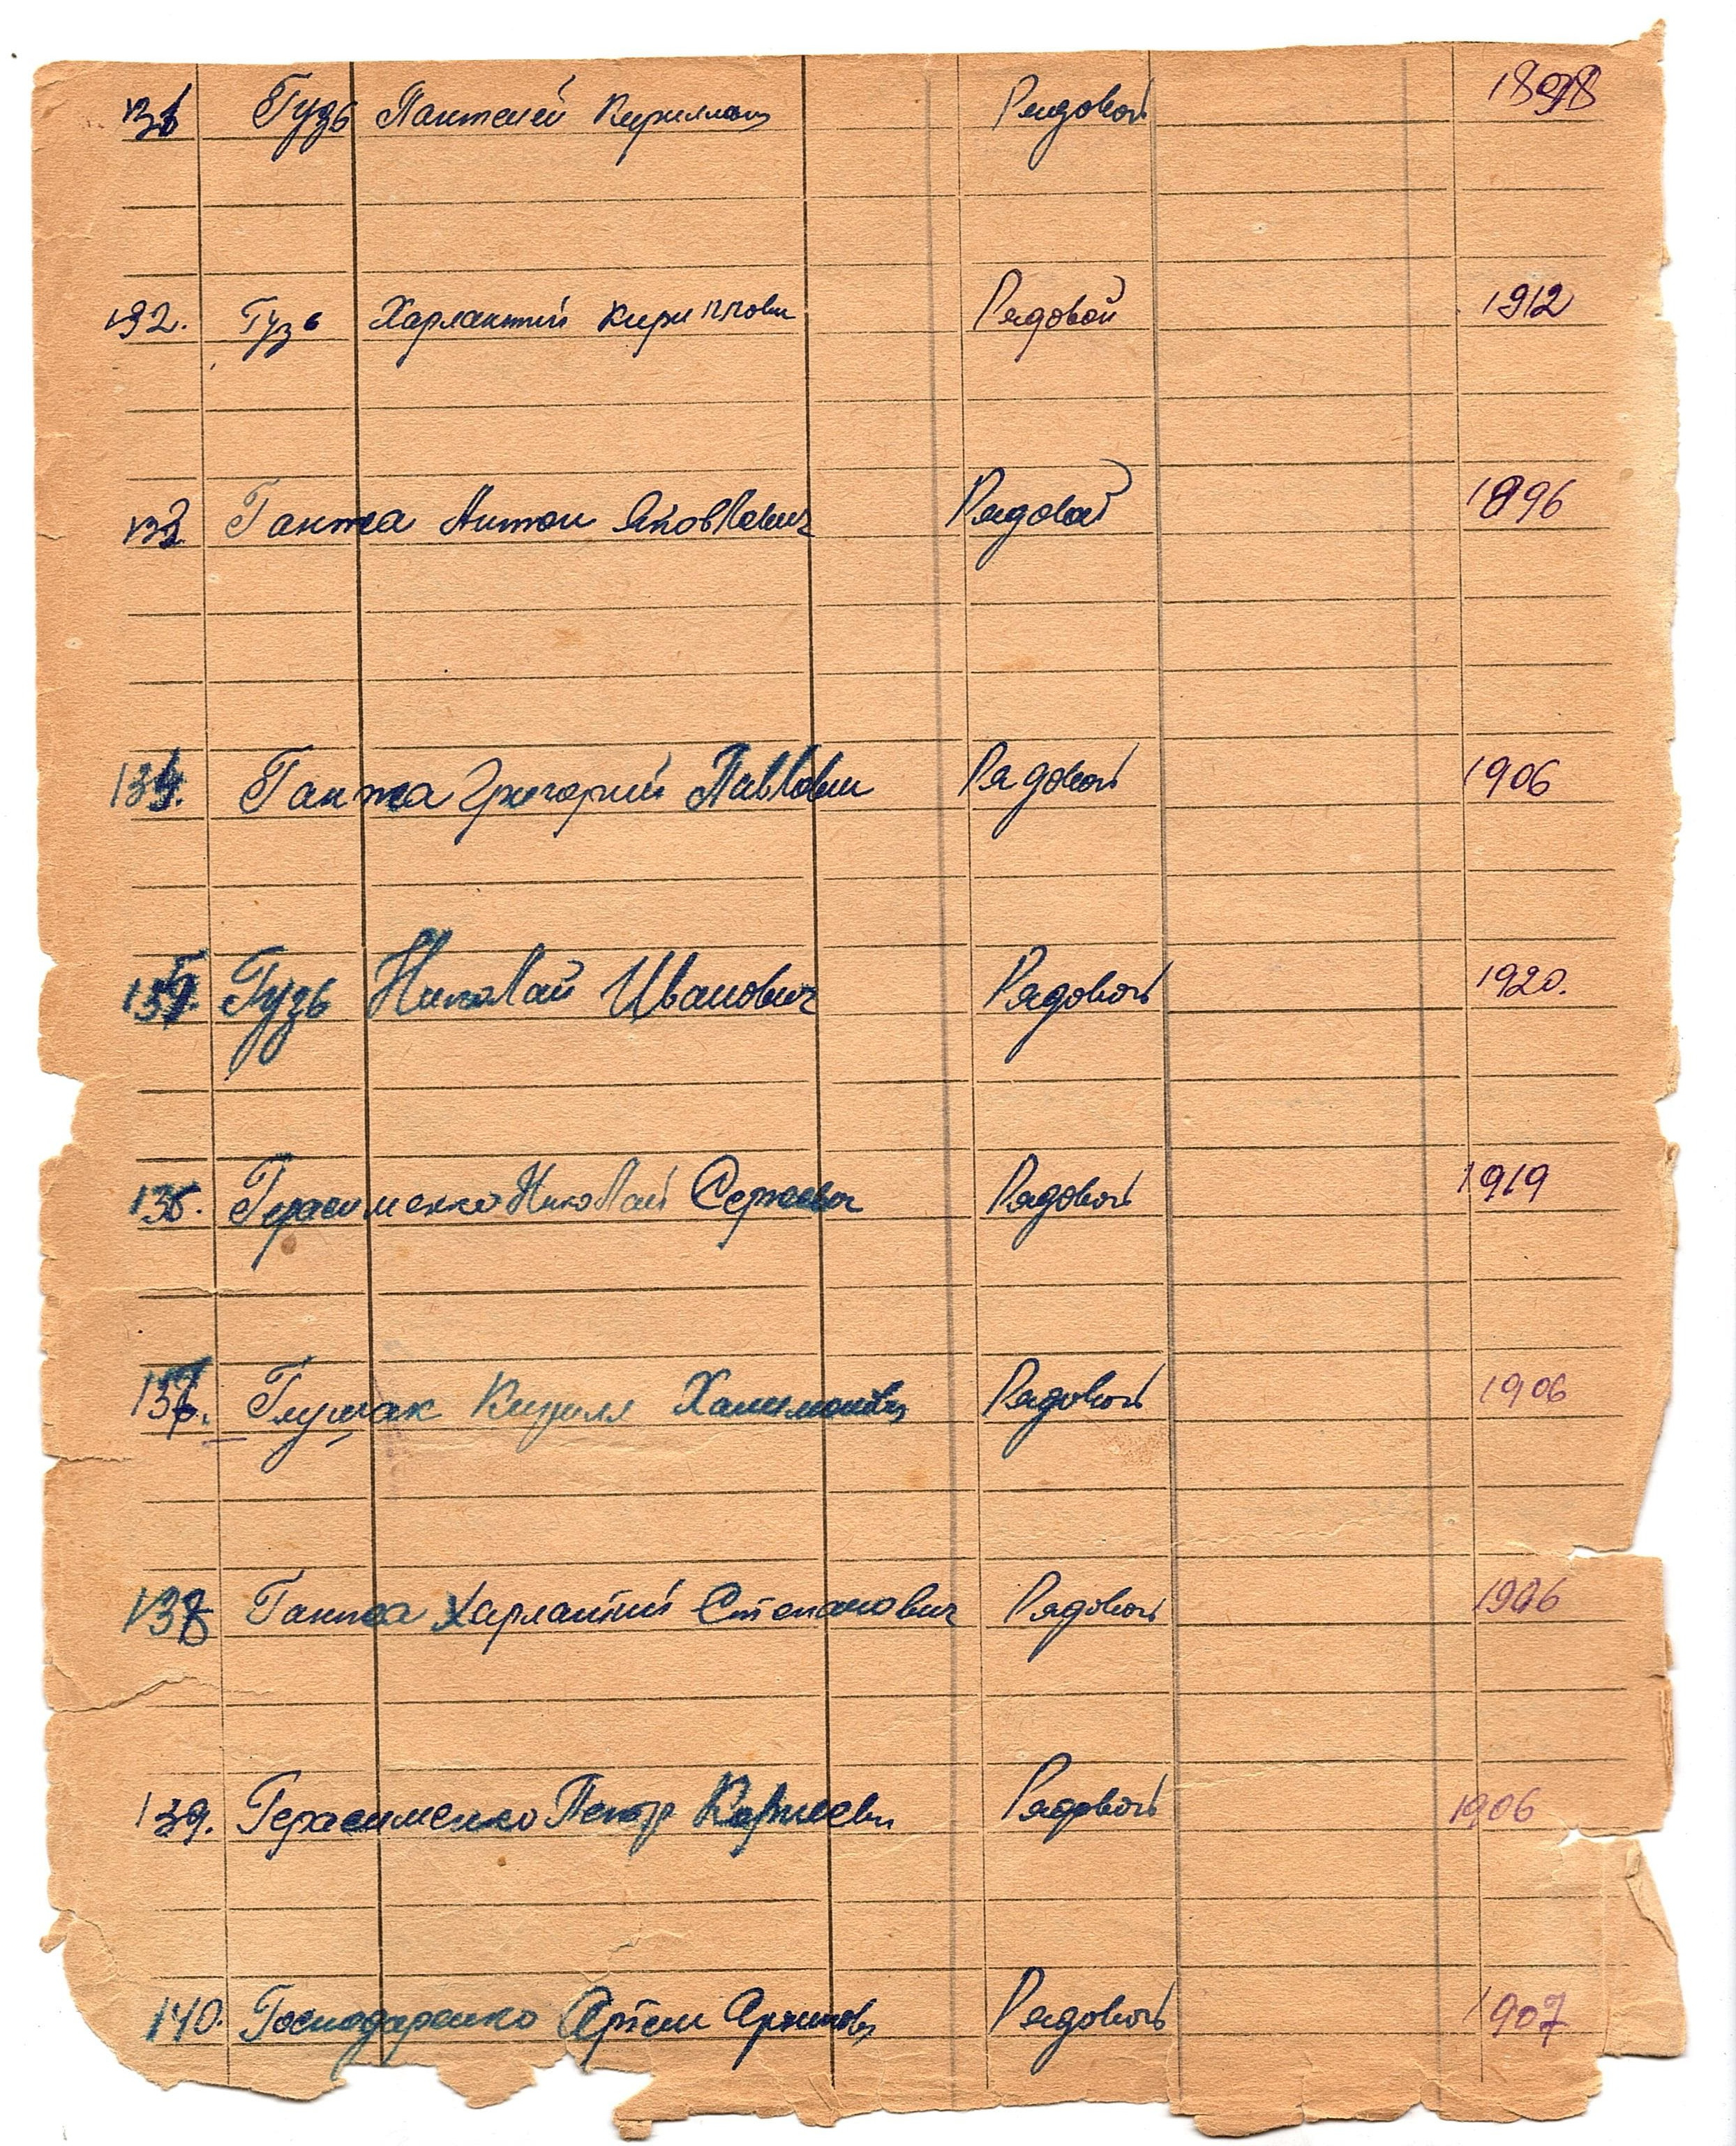 131 Гузь Пантелей Кириллович Рядовой 1898
132. Гузь Харлантий Кириллови Рядовой 1912
133 Ганжа Антон Яковлевич Рядовой 1896
134. Ганжа Григорий Павлови Рядовой 1906
135. Гузь Николай Иванович Рядовой 1920.
136. Герасименко Николай Сергеевич Рядовой 1919
137. Глушак Кирилл Халимонович Рядовой 1906
138 Ганжа Харлантий Степанович Рядовой 1906
139. Герасименко Петр Рядовой 1906
140. Господаренко Артем Архипович Рядовой 1907